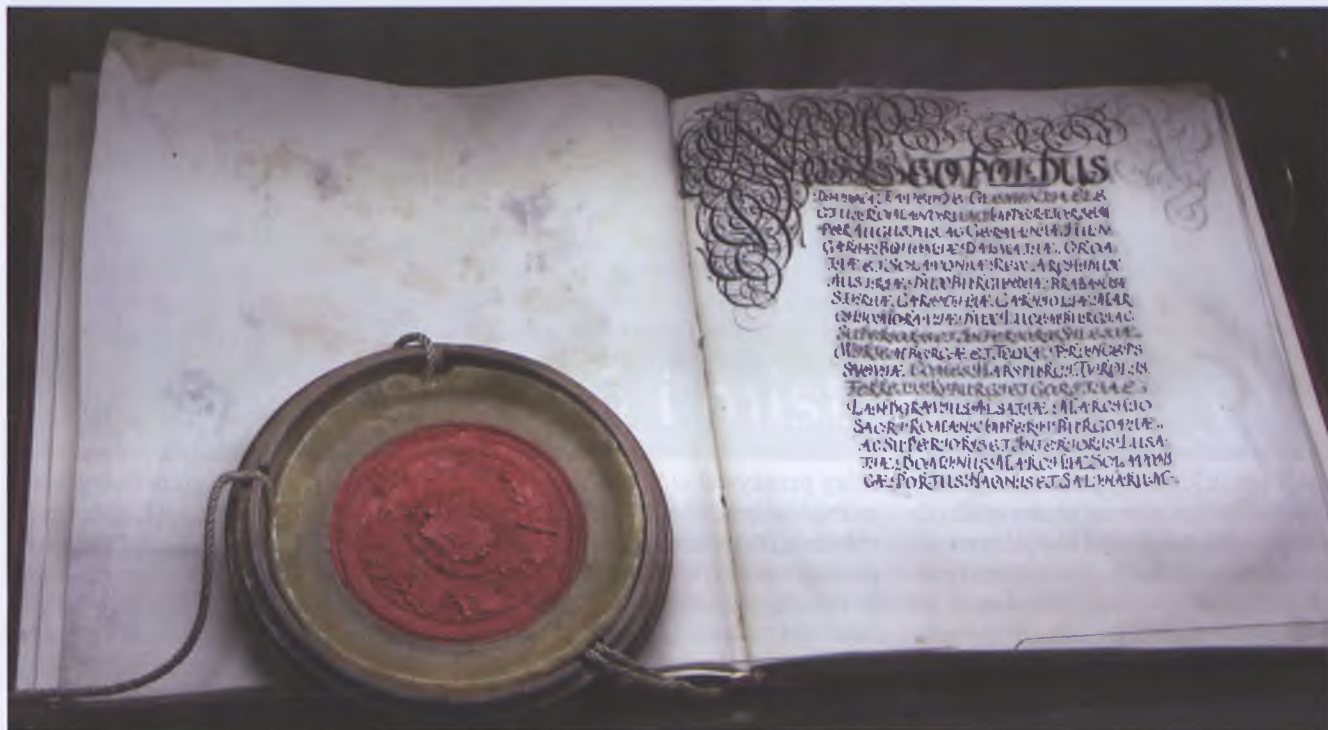 NOS LEOPOLDUS
CLEMENTIA ELE
ROMANORUM IMPERATOR SEM
PER AUGUSTUS AC GERMANIÆ HUN
GARIÆ BOHEMIÆ DALMATIÆ CROA
TIÆ ET SCLAVONIÆ REX ARCHIDUX
AUSTRIÆ DUX BURGUNDIÆ BRABANTIÆ
STYRIÆ CARINTHIÆ CARNIOLIÆ MAR
CHIO MORAVIÆ DUX LUCEMBURGÆ AC
SUPERIORIS ET INFERIORIS SILESIÆ
WIRTEMBERGÆ ET TECKÆ PRINCEPS
SUEVIÆ COMES HABSPURGI TYROLIS
FERRETIS KYBURGI ET GORITIÆ
LANDGRAVIUS ALSATIÆ MARCHIO
SACRI ROMANI IMPERII BURGOVIÆ
AC SUPERIORIS ET INFERIORIS LUSA
TIÆ DOMINUS MARCHIÆ SCLAVONI
CÆ PORTUS NAONIS ET SALINARUM